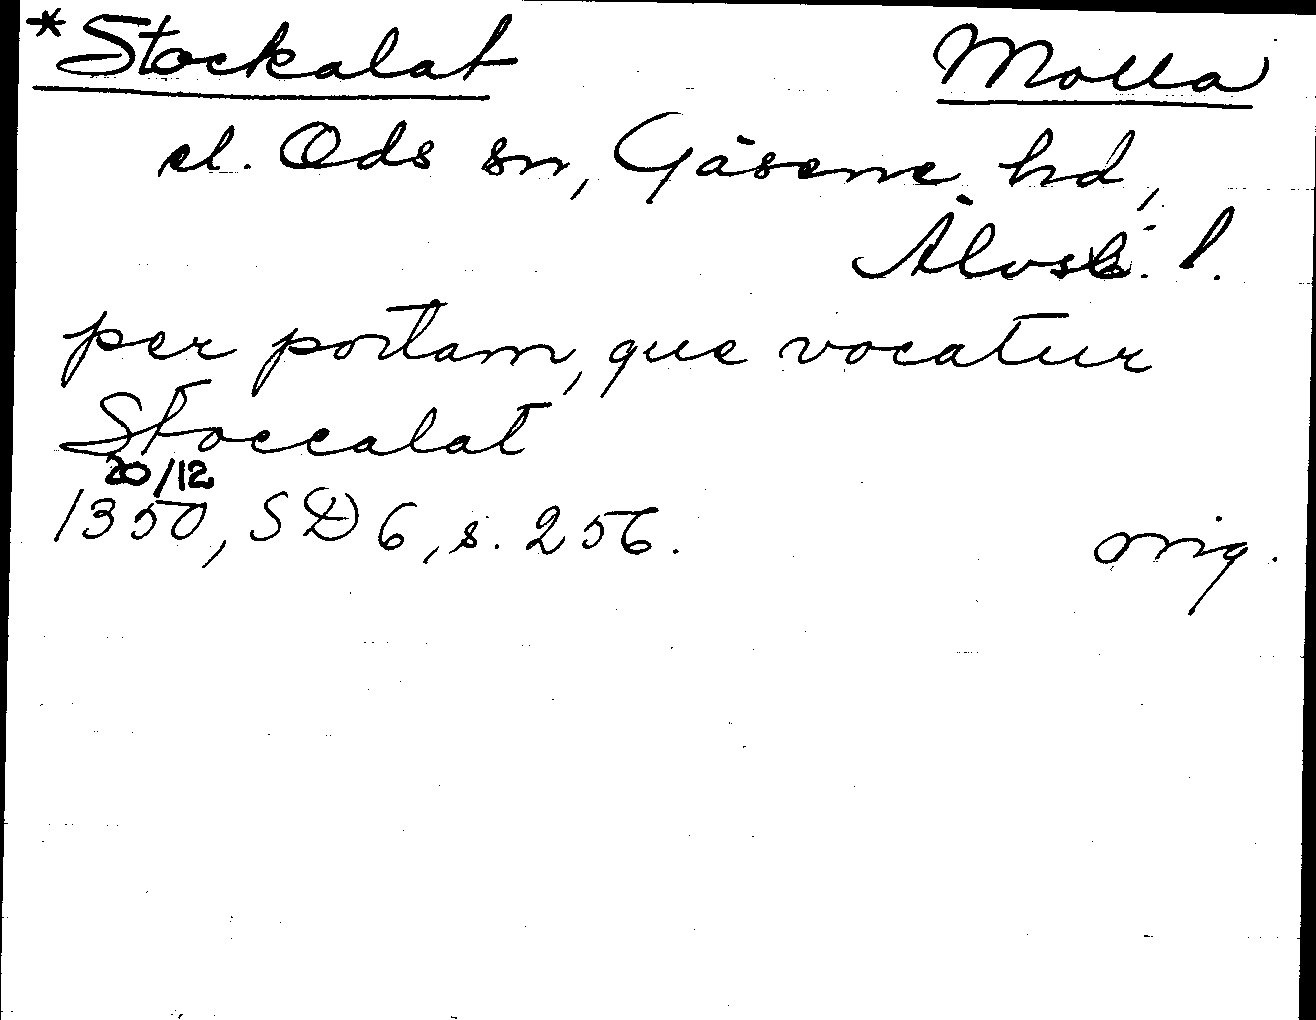 *Stockalat Molla
el. Ods sn, Gäsene hd,
Älvsb. l.
per portam, que vocatur
Stoccalat
20/12
1350, SD 6, s. 256. orig.